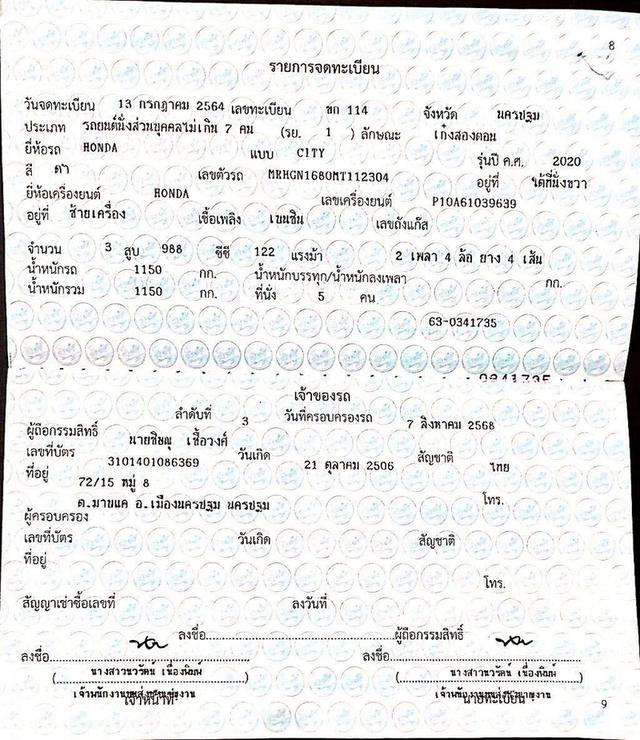 8
รายการจดทะเบียน
วันจดทะเบียน 13 กรกฎาคม 2564 เลขทะเบียน ขก 114 จังหวัด นครปฐม
ประเภท รถยนต์นั่งส่วนบุคคลไม่เกิน 7 คน (รย. 1 ) ลักษณะ เก๋งสองตอน
ยี่ห้อรถ HONDA แบบ CITY รุ่นปี ค.ศ. 2020
สี ดำ เลขตัวรถ MRHGN1680MT112304 อยู่ที่ ใต้ที่นั่งขวา
ยี่ห้อเครื่องยนต์ HONDA เลขเครื่องยนต์ P10A61039639
อยู่ที่ ซ้ายเครื่อง เชื้อเพลิง เบนซิน เลขถังแก๊ส
จำนวน 3 สูบ 988 ซีซี 122 แรงม้า 2 เพลา 4 ล้อ ยาง 4 เส้น
น้ำหนักรถ 1150 กก. น้ำหนักบรรทุก/น้ำหนักลงเพลา กก.
น้ำหนักรวม 1150 กก. ที่นั่ง 5 คน
63-0341735
0341735
เจ้าของรถ
ลำดับที่ 3 วันที่ครอบครองรถ 7 สิงหาคม 2568
ผู้ถือกรรมสิทธิ์ นายชิษณุ เชื้อวงศ์
เลขที่บัตร 3101401086369 วันเกิด 21 ตุลาคม 2506 สัญชาติ ไทย
ที่อยู่ 72/15 หมู่ 8
ต.มาบแค อ.เมืองนครปฐม นครปฐม โทร.
ผู้ครอบครอง
เลขที่บัตร วันเกิด สัญชาติ
ที่อยู่
โทร.
สัญญาเช่าซื้อเลขที่ ลงวันที่
ลงชื่อ ผู้ถือกรรมสิทธิ์
ลงชื่อ ลงชื่อ
(นางสาวนวรัตน์ เนื่องพิมพ์) (นางสาวนวรัตน์ เนื่องพิมพ์)
เจ้าหน้าที่ นายทะเบียน
9